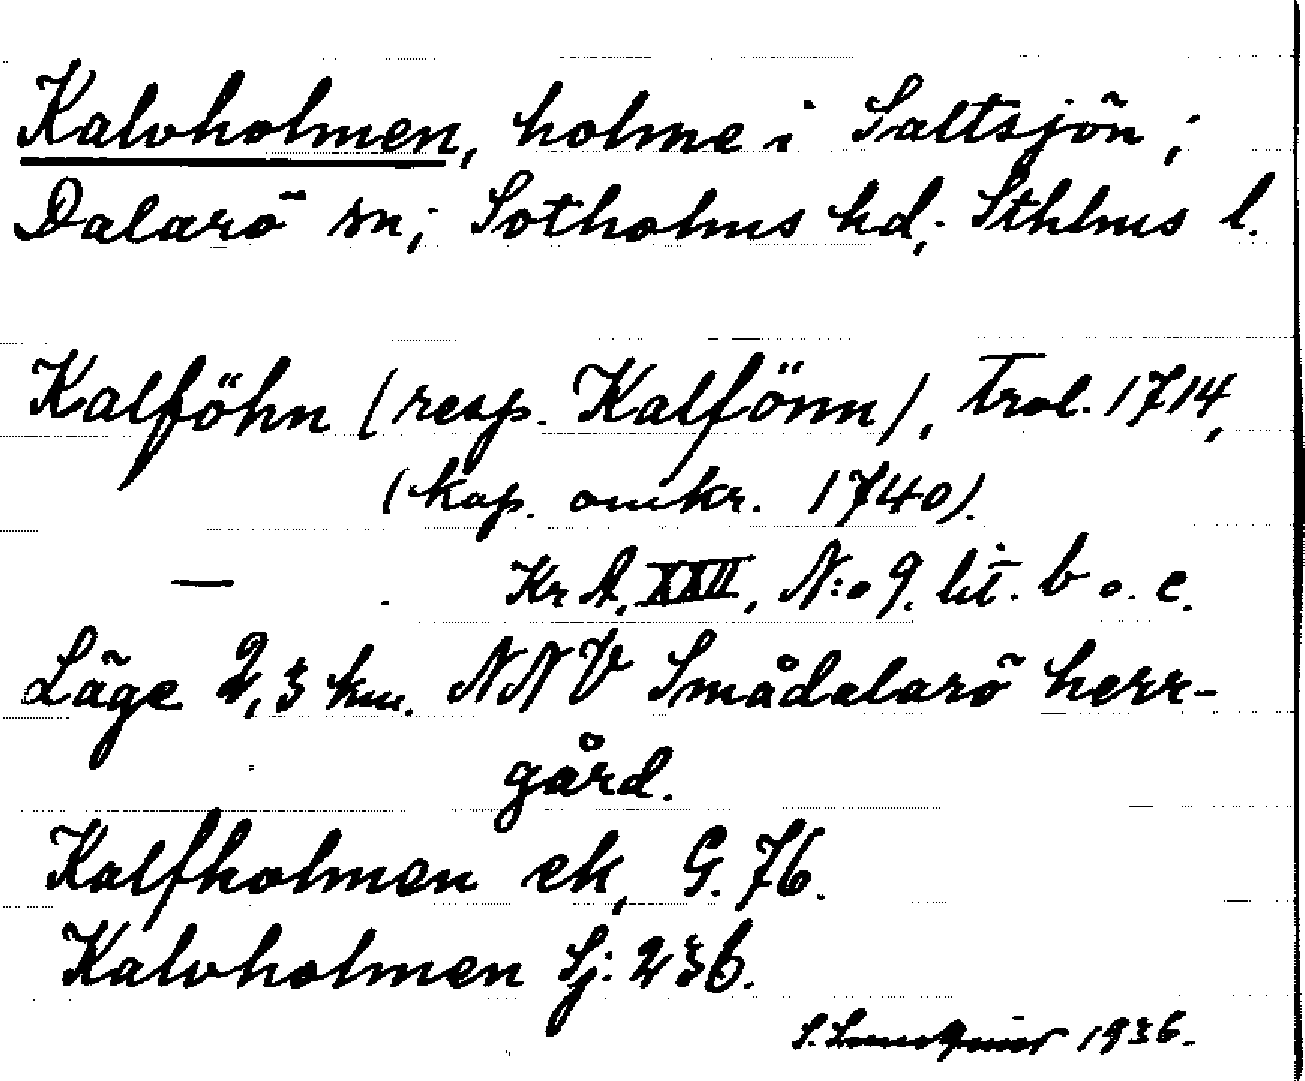 Kalvholmen, holme i Saltsjön;
Dalarö sn; Sotholms hd; Sthlms l.
Kalföhn (resp. Kalfönn), Trol. 1714,
(kop. omkr. 1740).
— Kr A. XXII, N:o 9. lit. b o. c.
Läge 2,3 km. NNV Smådalarö herr-
gård.
Kalfholmen ek, G. 76.
Kalvholmen Sj: 236.
S. 1936.